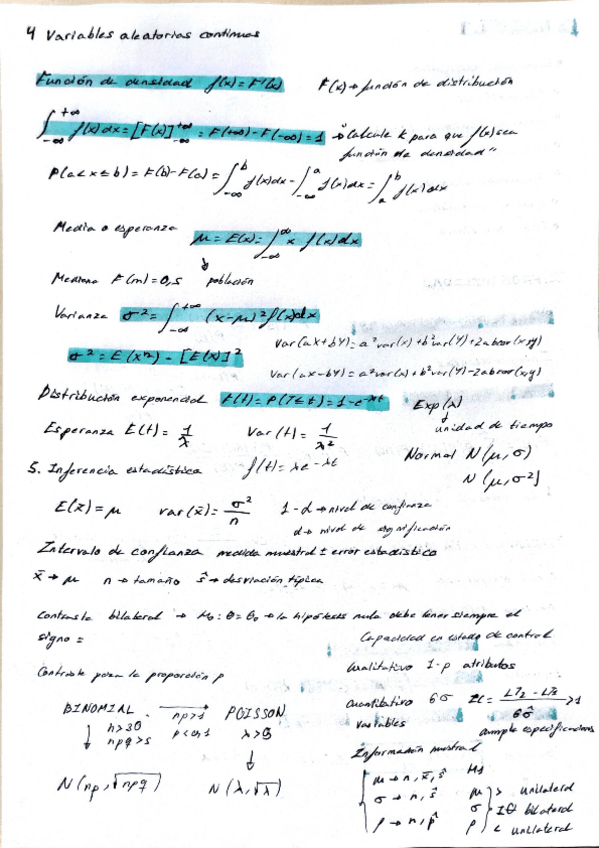 4 Variables aleatorias continuas
Función de densidad f(x) = F'(x) F(x) → función de distribución
∫_{-∞}^{+∞} f(x)dx = [F(x)]_{-∞}^{+∞} = F(+∞) - F(-∞) = 1 → "Calcule k para que f(x) sea
función de densidad"
P(a < x ≤ b) = F(b) - F(a) = ∫_{-∞}^{b} f(x)dx - ∫_{-∞}^{a} f(x)dx = ∫_{a}^{b} f(x)dx
Media o esperanza μ = E(x) = ∫_{-∞}^{∞} x f(x)dx
Mediana F(m) = 0,5 población
Varianza σ² = ∫_{-∞}^{+∞} (x-μ)² f(x)dx
var(aX+bY) = a²var(x) + b²var(y) + 2abcov(x,y)
σ² = E(x²) - [E(x)]²
var(ax-bY) = a²var(x) + b²var(y) - 2abcov(x,y)
Distribución exponencial F(t) = P(T ≤ t) = 1 - e^{-λt} Exp(λ)
unidad de tiempo
Esperanza E(t) = 1/λ Var(t) = 1/λ²
Normal N(μ, σ)
5. Inferencia estadística f(t) = λe^{-λt}
N(μ, σ²)
E(x̄) = μ var(x̄) = σ²/n 1-α → nivel de confianza
α → nivel de significación
Intervalo de confianza medida muestral ± error estadístico
x̄ → μ n → tamaño ŝ → desviación típica
Contraste bilateral → H₀: θ = θ₀ → la hipótesis nula debe tener siempre el
signo =
Capacidad en estado de control
Contraste para la proporción p
Cualitativo 1-p atributos
Cuantitativo 6σ
variables
BINOMIAL → POISSON
n > 30
npq > 5
λ > 5
cumple especificaciones
Información muestral
N(np, √npq) N(λ, √λ)
H₁
μ → n, x̄, ŝ μ > unilateral
σ → n, ŝ σ bilateral
p → n, p̂ p < unilateral